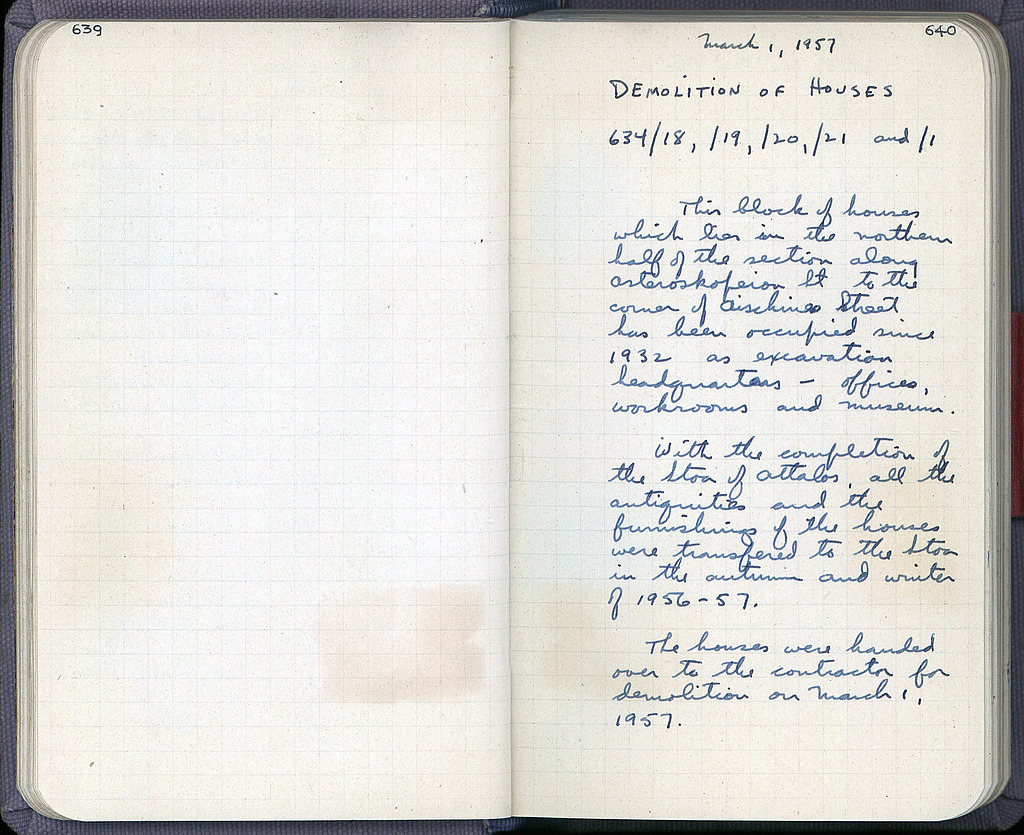 639
640
March 1, 1957
DEMOLITION OF HOUSES
634/18, /19, /20, /21 and /1
This block of houses
which lies in the northern
half of the section along
asteroskopeion St to the
corner of Aischines Street
has been occupied since
1932 as excavation
headquarters – offices,
workrooms and museum.
With the completion of
the Stoa of Attalos, all the
antiquities and the
furnishings of the houses
were transfered to the Stoa
in the autumn and winter
of 1956-57.
The houses were handed
over to the contractor for
demolition on March 1,
1957.